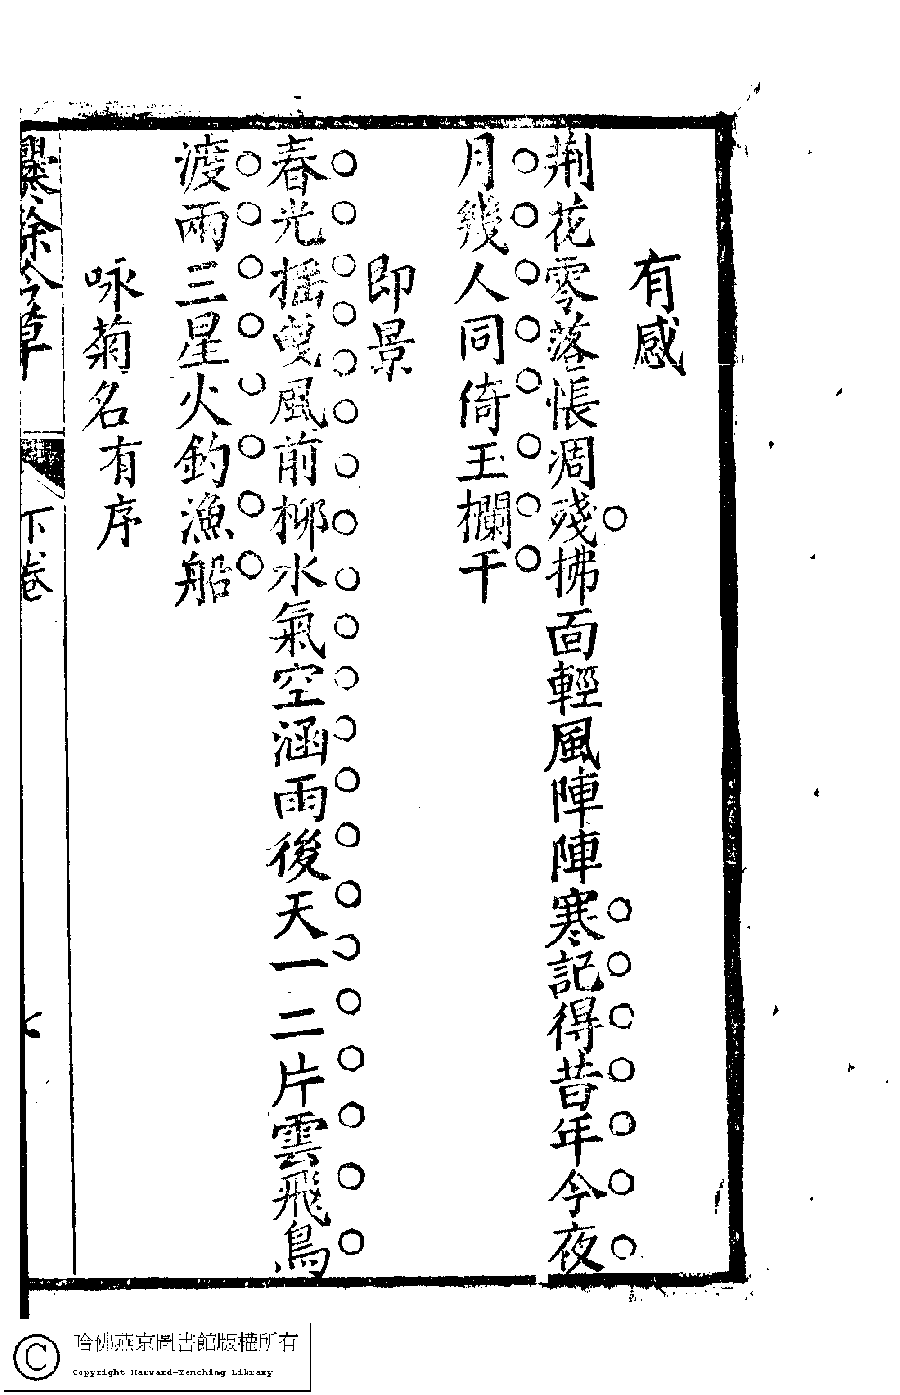 有感
荆花零落悵凋殘拂面輕風陣陣寒記得昔年今夜
月幾人同倚玉欄干
即景
春光摇曵風前柳水氣空涵雨後天一二片雲飛鳥
渡兩三星火釣漁船
咏菊名有序
爨餘吟草
下卷
七
哈佛燕京圖書館版權所有
Copyright Harvard-Yenching Library